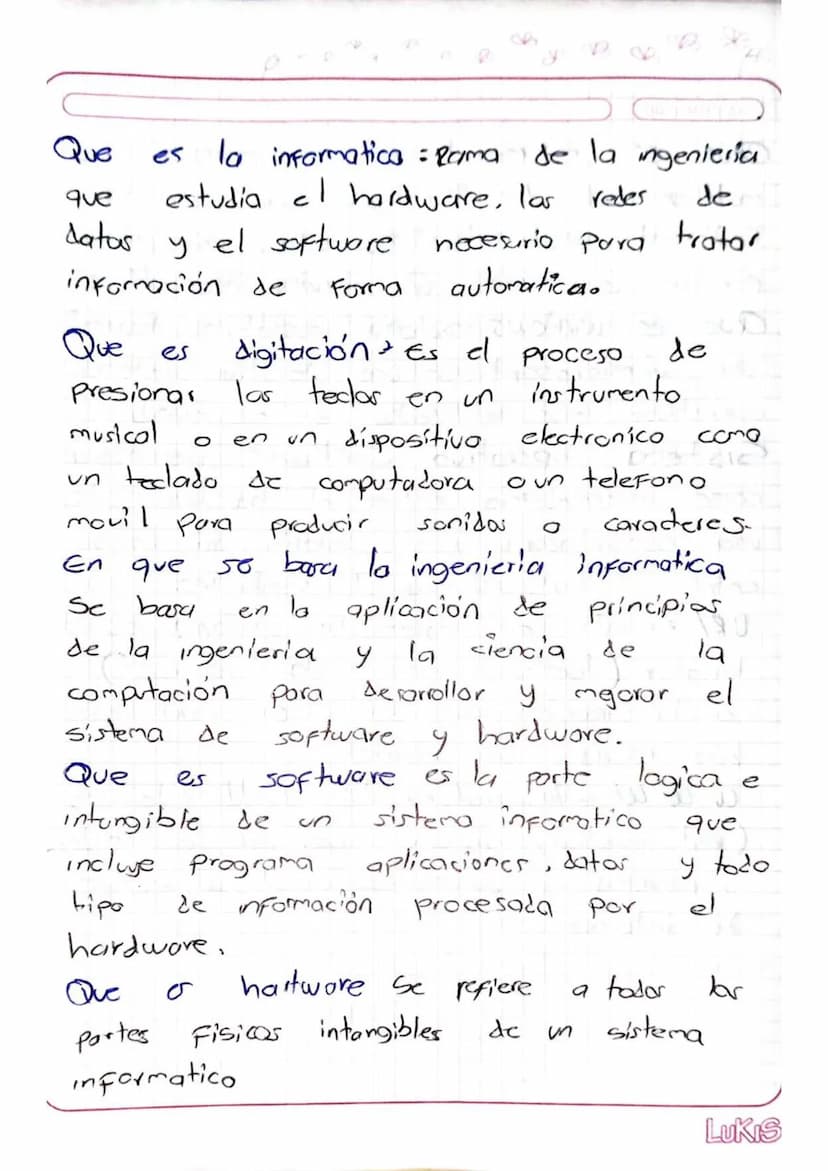 Que es la informatica : Rama de la ingenieria
que estudia el hardware, las redes de
datos y el software necesario para tratar
información de forma automatica.
Que es digitación → Es el proceso de
presionar las teclas en un instrumento
musical o en un dispositivo electronico como
un teclado de computadora o un telefono
movil para producir sonidos o caracteres.
En que se basa la ingenieria informatica
Se basa en la aplicación de principios
de la ingenieria y la ciencia de la
computación para desarrollar y mejorar el
sistema de software y hardware.
Que es software es la parte logica e
intangible de un sistema informatico que
incluye programa aplicaciones, datos y todo
tipo de información procesada por el
hardware.
Que es hartware Se refiere a todas las
partes fisicas intangibles de un sistema
informatico
LUKIS